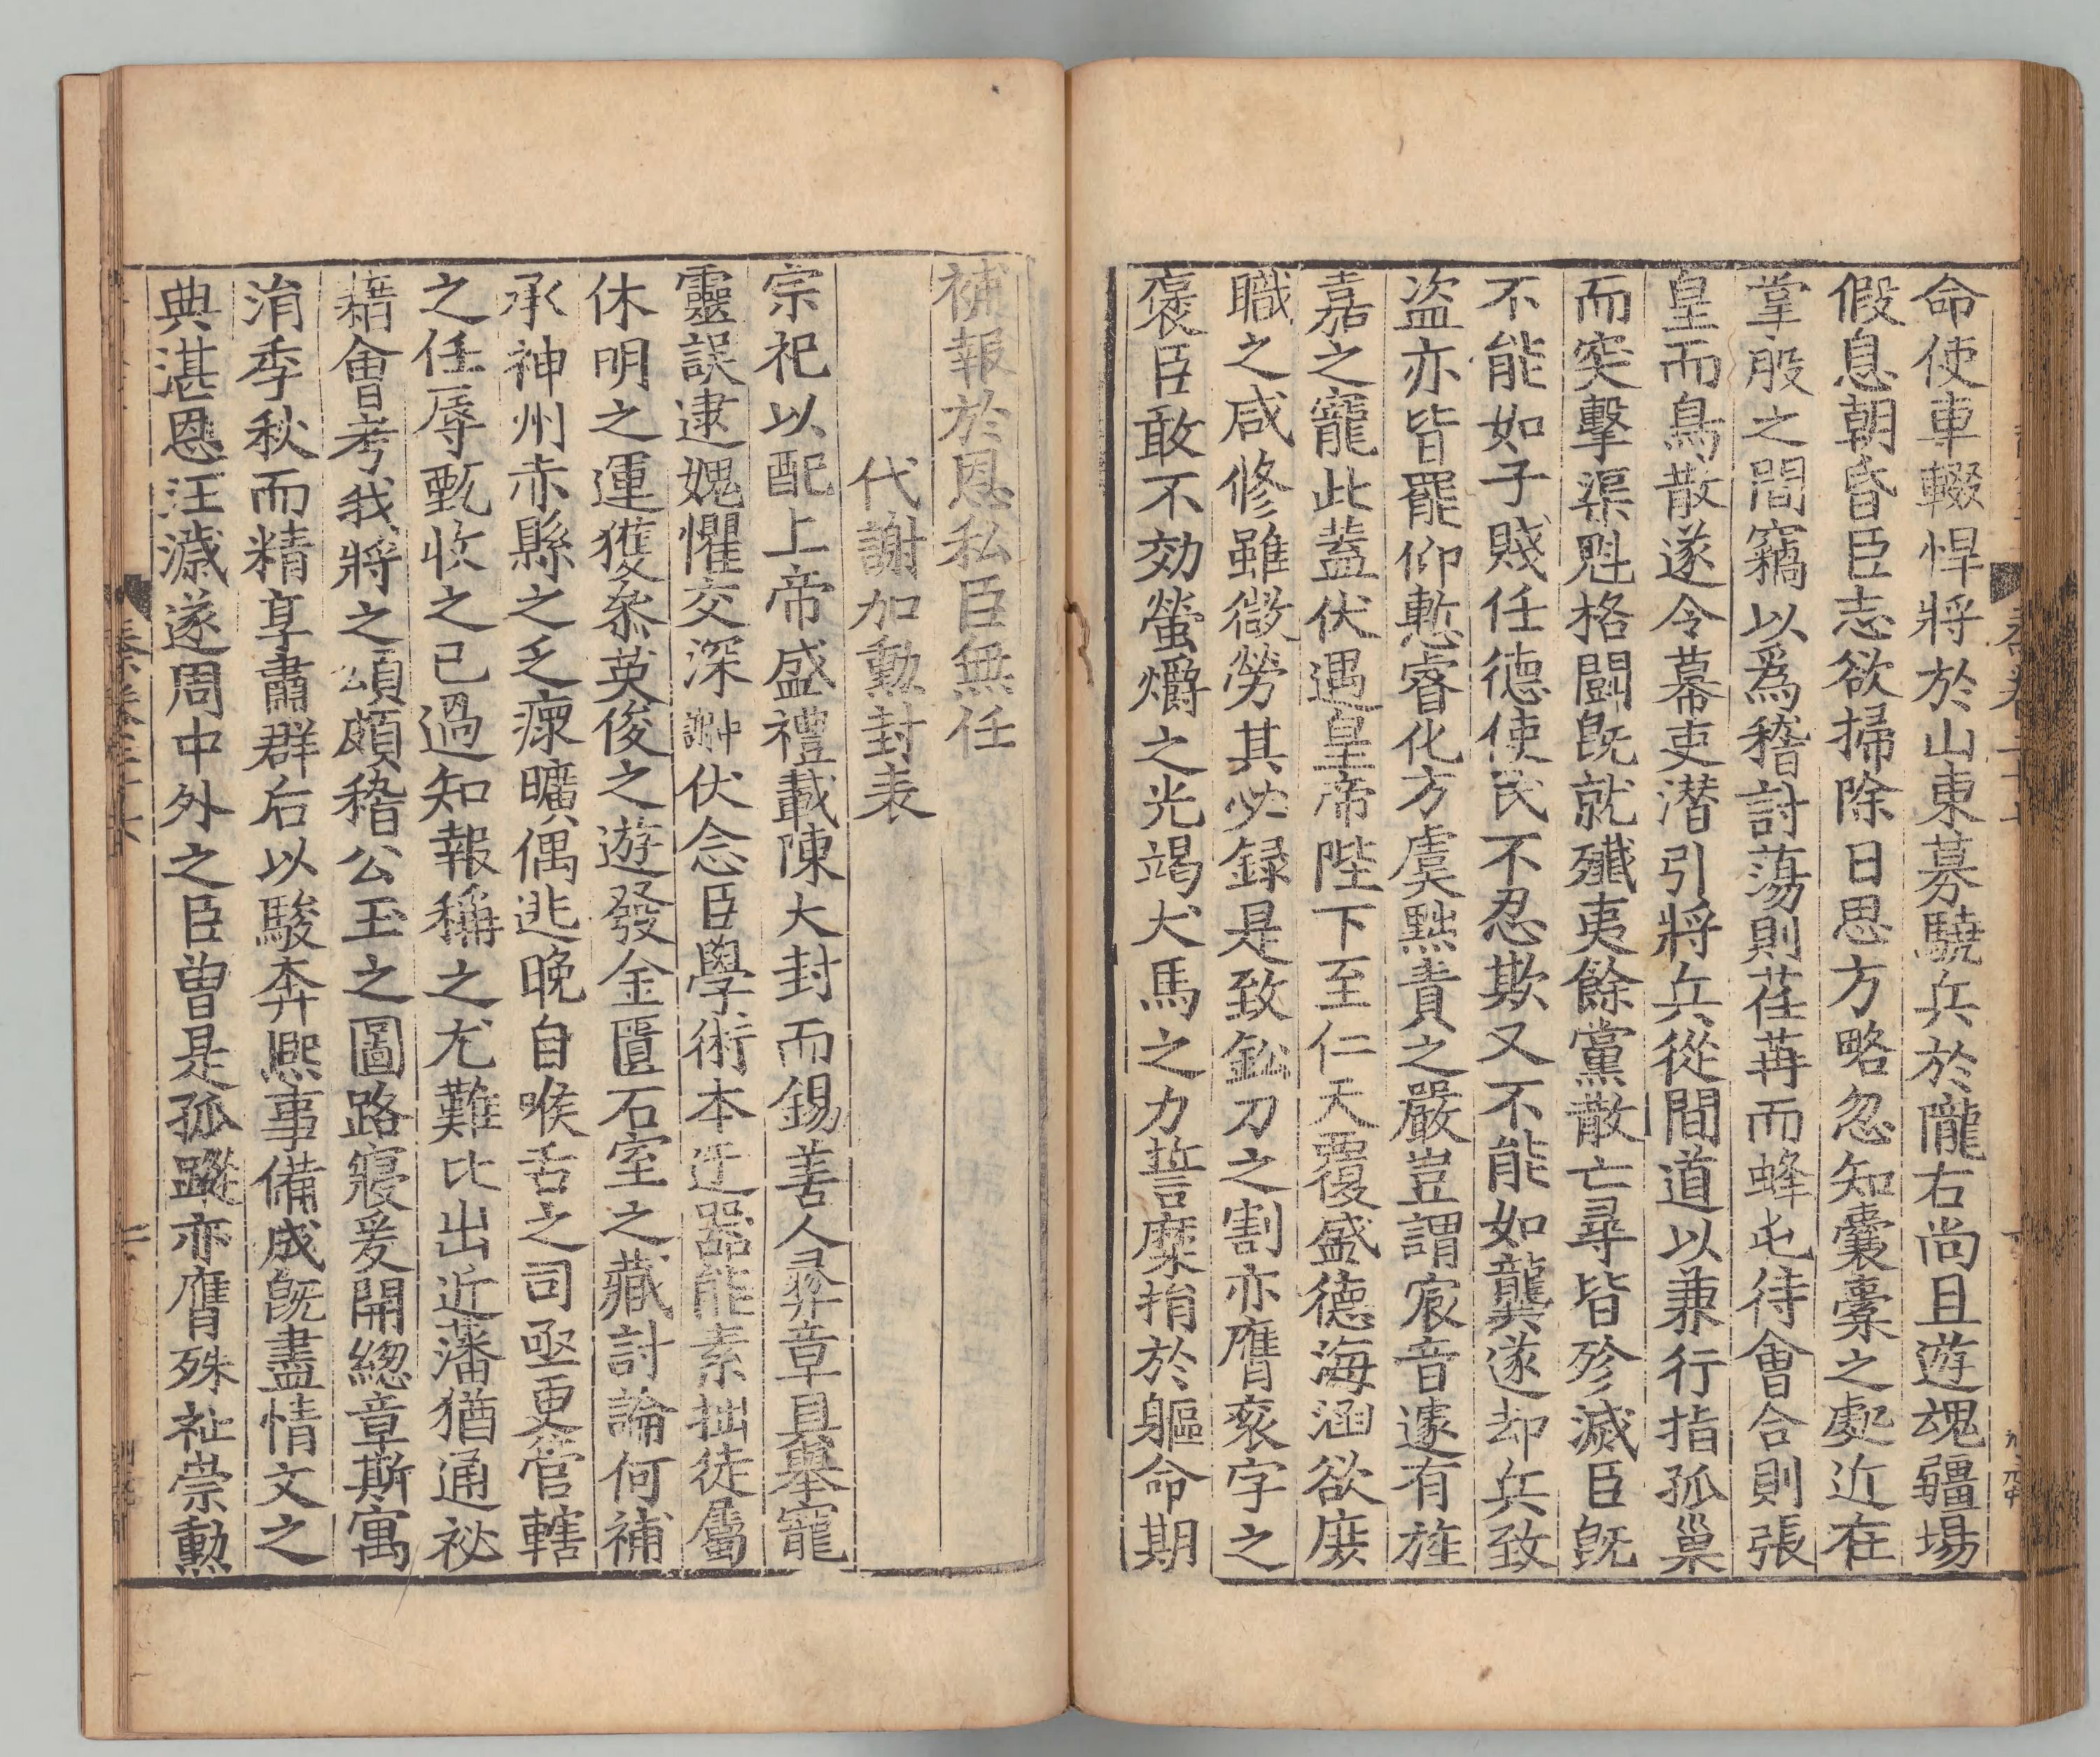 命使車輟悍將於山東募驍兵於隴右尚且遊魂疆埸
假息朝昏臣志欲掃除日思方略忽知囊橐之處近在
掌股之間竊以爲稽討蕩則荏苒而蜂屯待會合則張
皇而鳥散遂令幕吏潛引將兵從間道以兼行指孤巢
而突擊渠魁格鬪旣就殱夷餘黨散亡尋皆殄滅臣旣
不能如子賤任德使民不忍欺又不能如龔遂却兵致
盗亦皆罷仰慙睿化方虞黜責之嚴豈謂宸音遽有旌
嘉之寵此葢伏遇皇帝陛下至仁天覆盛德海涵欲庶
職之咸修雖微勞其必録是致鈆刀之割亦膺衮字之
褒臣敢不効螢爝之光竭犬馬之力誓糜捐於軀命期
補報於恩私臣無任
代謝加勳封表
宗祀以配上帝盛禮載陳大封而錫善人彛章具舉寵
靈誤逮媿懼交深謝中伏念臣學術本迂器能素拙徒屬
休明之運獲叅英俊之遊發金匱石室之藏討論何補
承神州赤縣之乏瘝曠偶逃晚自喉舌之司亟更管轄
之任辱甄收之已過知報稱之尤難比出近藩猶通祕
籍會考我將之頌頗稽公玉之圖路寢爰開緫章斯寓
涓季秋而精享肅群后以駿奔熈事備成旣盡情文之
典湛恩汪濊遂周中外之臣曽是孤蹤亦膺殊祉崇勲